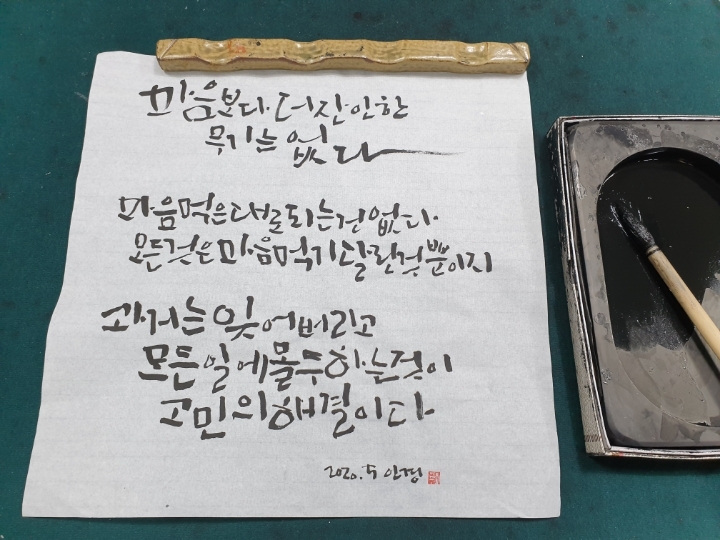 마음보다 더 잔인한
무기는 없다
마음먹은대로 되는건 없다.
모든것은 마음먹기 달린것 뿐이지
과거는 잊어버리고
모든 일에 몰두하는것이
고민의 해결이다
2020. 5 인경